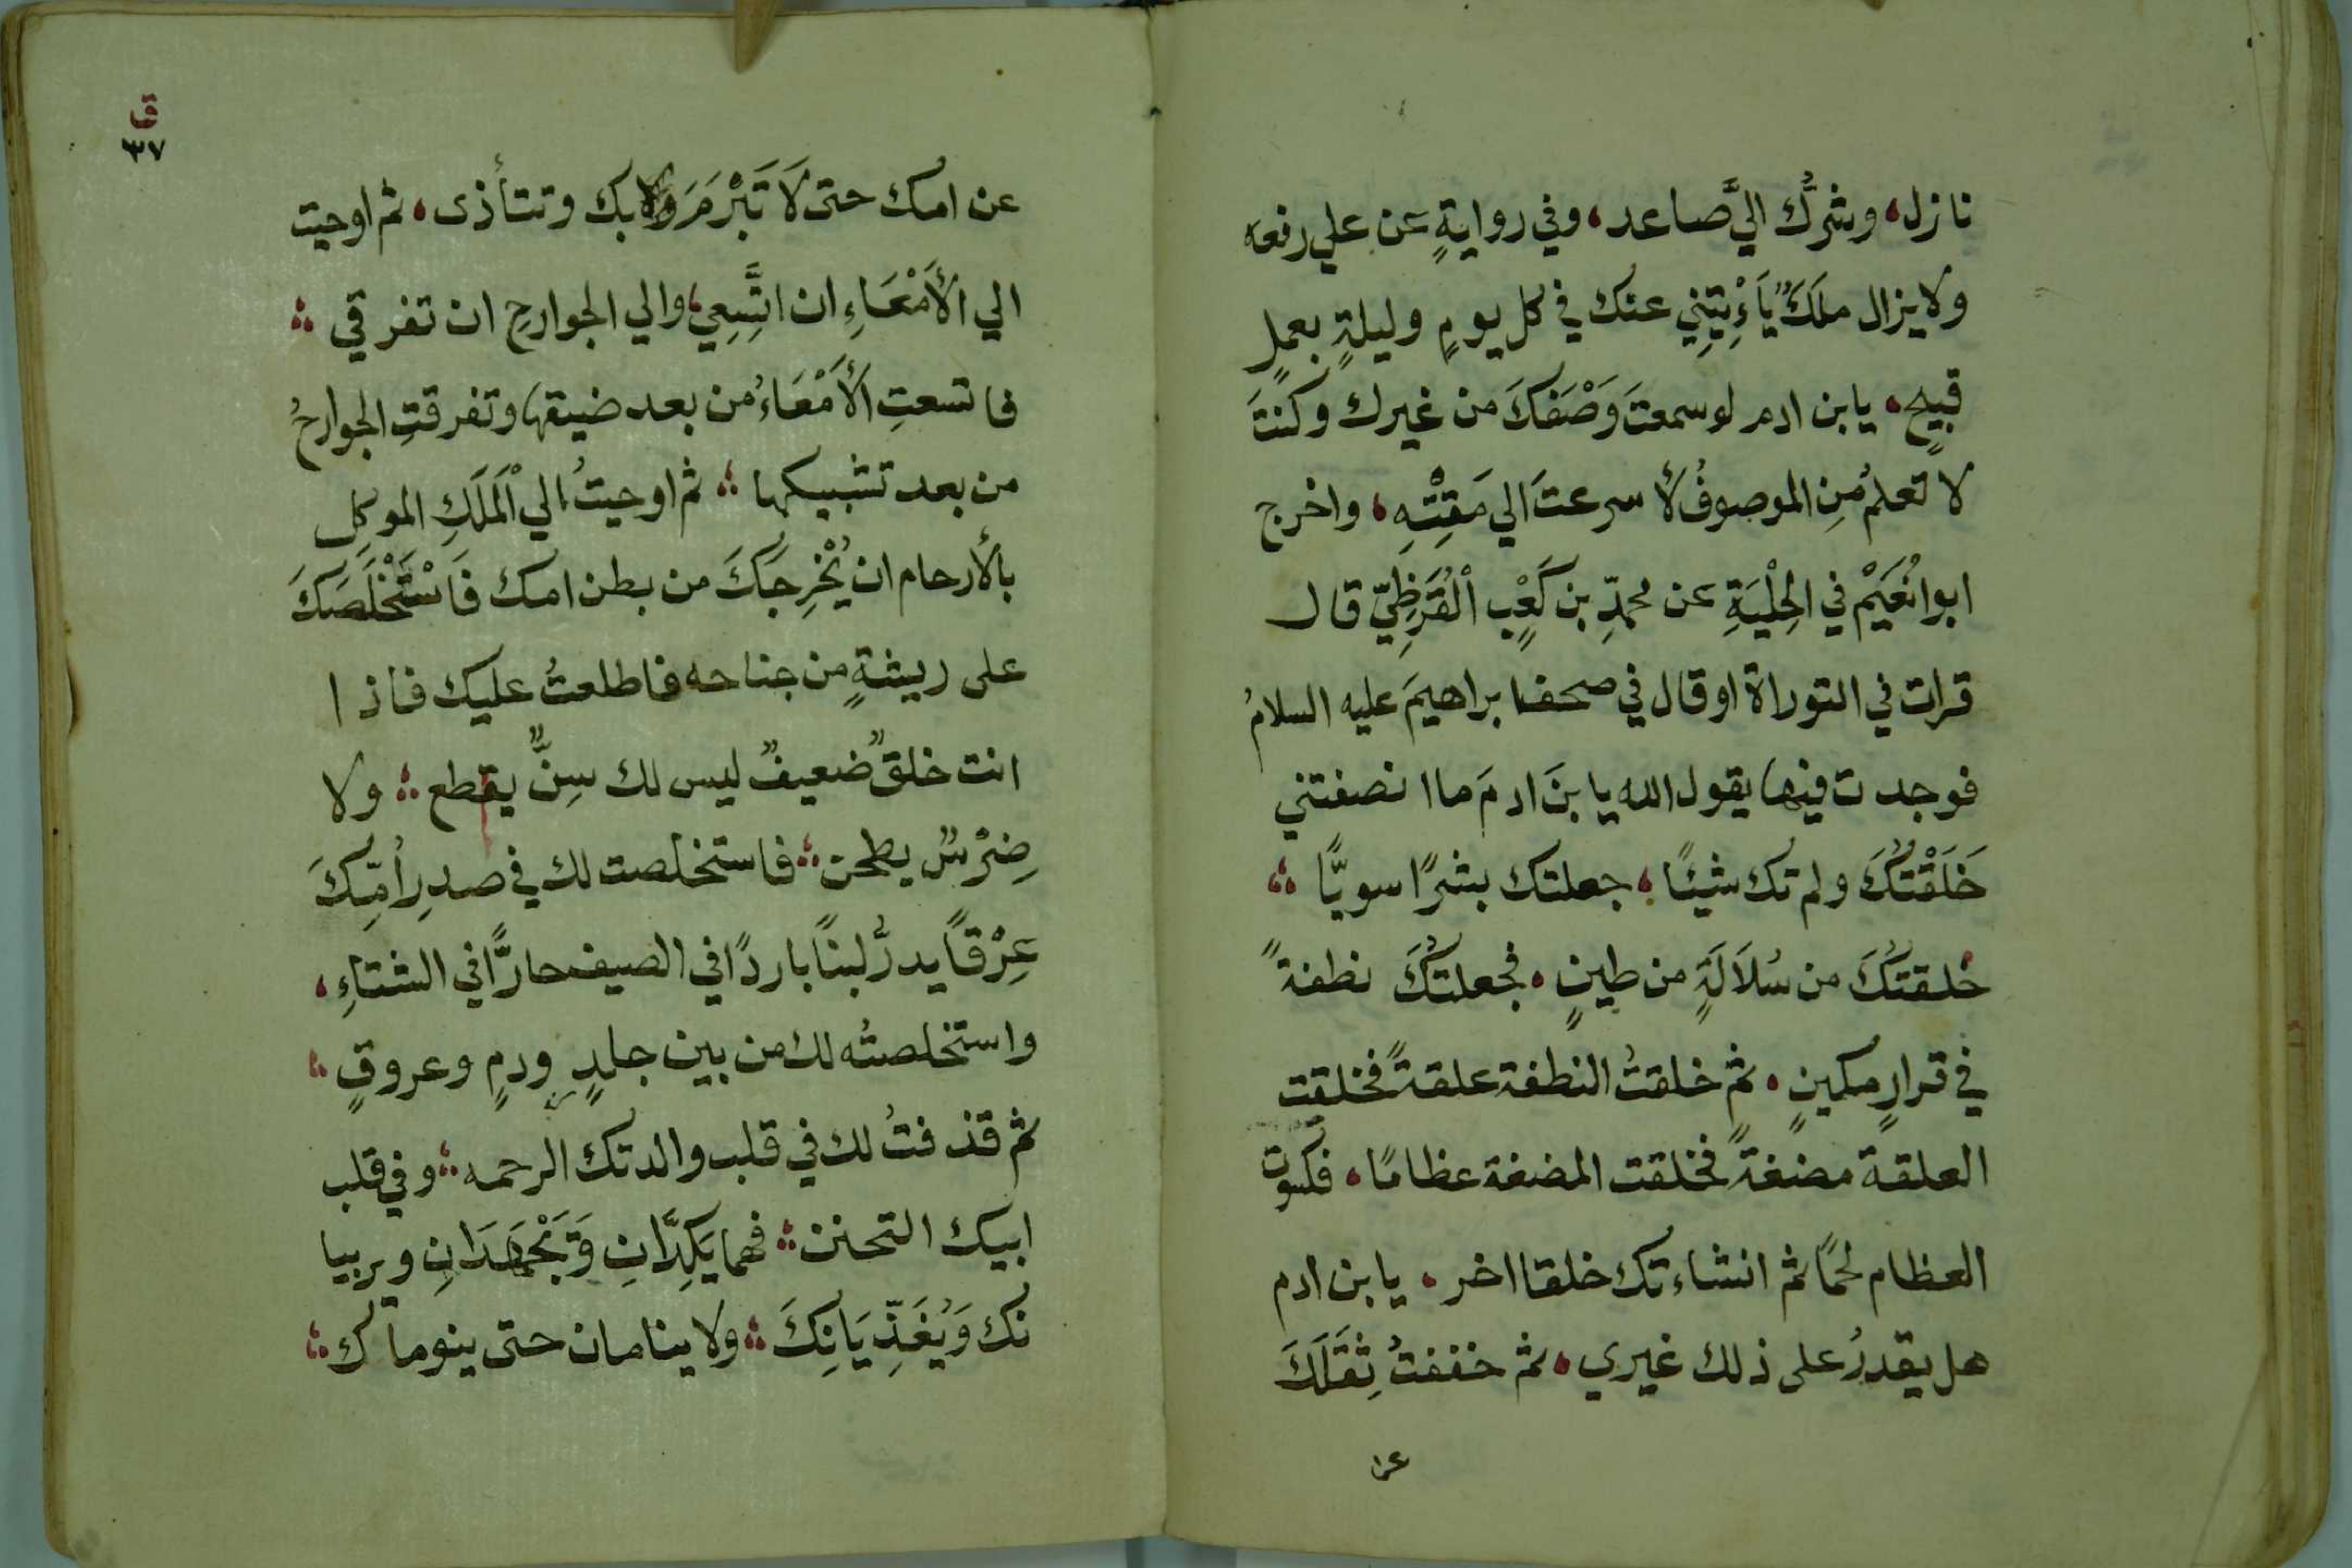 نازل، وشرُّك اليَّ صاعد، وفي روايةٍ عن علي رفعه
ولا يزال ملَكٌ يَأْتِيْنِي عنك في كل يومٍ وليلةٍ بعملٍ
قبيحٍ، يابن ادم لو سمعتَ وَصْفَكَ من غيرك وكنتَ
لا تعلمُ مَنِ الموصوفُ لأسرعتَ الي مَقِتْهِ، واخرج
ابوانُعَيْمٌ في الحِلْيَةِ عن محمدِ بن كَعْبٍ الْقُرَظِيّ قال
قرات في التوراة او قال في صحف ابراهيمَ عليه السلامُ
فوجدت فيها يقول الله يا بنَ ادمَ ما انصفتني
خَلَقْتُكَ ولم تك شيئًا، جعلتك بشرًا سويًّا
خلقتُكَ من سُلَالَةٍ من طينٍ، فجعلتُكَ نطفةً
في قرارٍ مكينٍ، ثم خلقتُ النطفة علقةً فخلقت
العلقة مضغةً فخلقت المضغة عظامًا، فكسوت
العظام لحمًا ثم انشاءتك خلقا اخر، يابن ادم
هل يقدرُ على ذلك غيري، ثم خففتُ ثِقَلَكَ
عن
ق
٣٧
عن امك حتى لَا تَبْرَمَ بك وتتأذى، ثم اوحيت
الي الأَمْعَاءِ ان اتَّسِعِي، والي الجوارحِ ان تفرقي
فاتسعتِ الأَمْعَاءُ من بعد ضيقها وتفرقتِ الجوارحُ
من بعد تشبيكها ثم اوحيتُ الي الْمَلَكِ الموكل
بالأرحام ان يُخْرِجَكَ من بطن امك فَاسْتَخْلَصَكَ
على ريشةٍ من جناحه فاطلعتُ عليك فاذا
انت خلقٌ ضعيفٌ ليس لك سِنٌّ يقطع ولا
ضِرْسٌ يطحن فاستخلصت لك في صدرِ أُمِّكَ
عِرْقًا يدرُّ لبنًا باردًا في الصيف حارًّا في الشتاءِ،
واستخلصتُه لك من بين جلدٍ ودمٍ وعروقٍ
ثم قذفتُ لك في قلب والدتك الرحمه وفي قلب
ابيك التحنن فهما يَكِدَّانِ وَيَجْهَدَانِ ويربيا
نك وَيُغَذِّيَانِكَ ولا ينامان حتى ينوماك